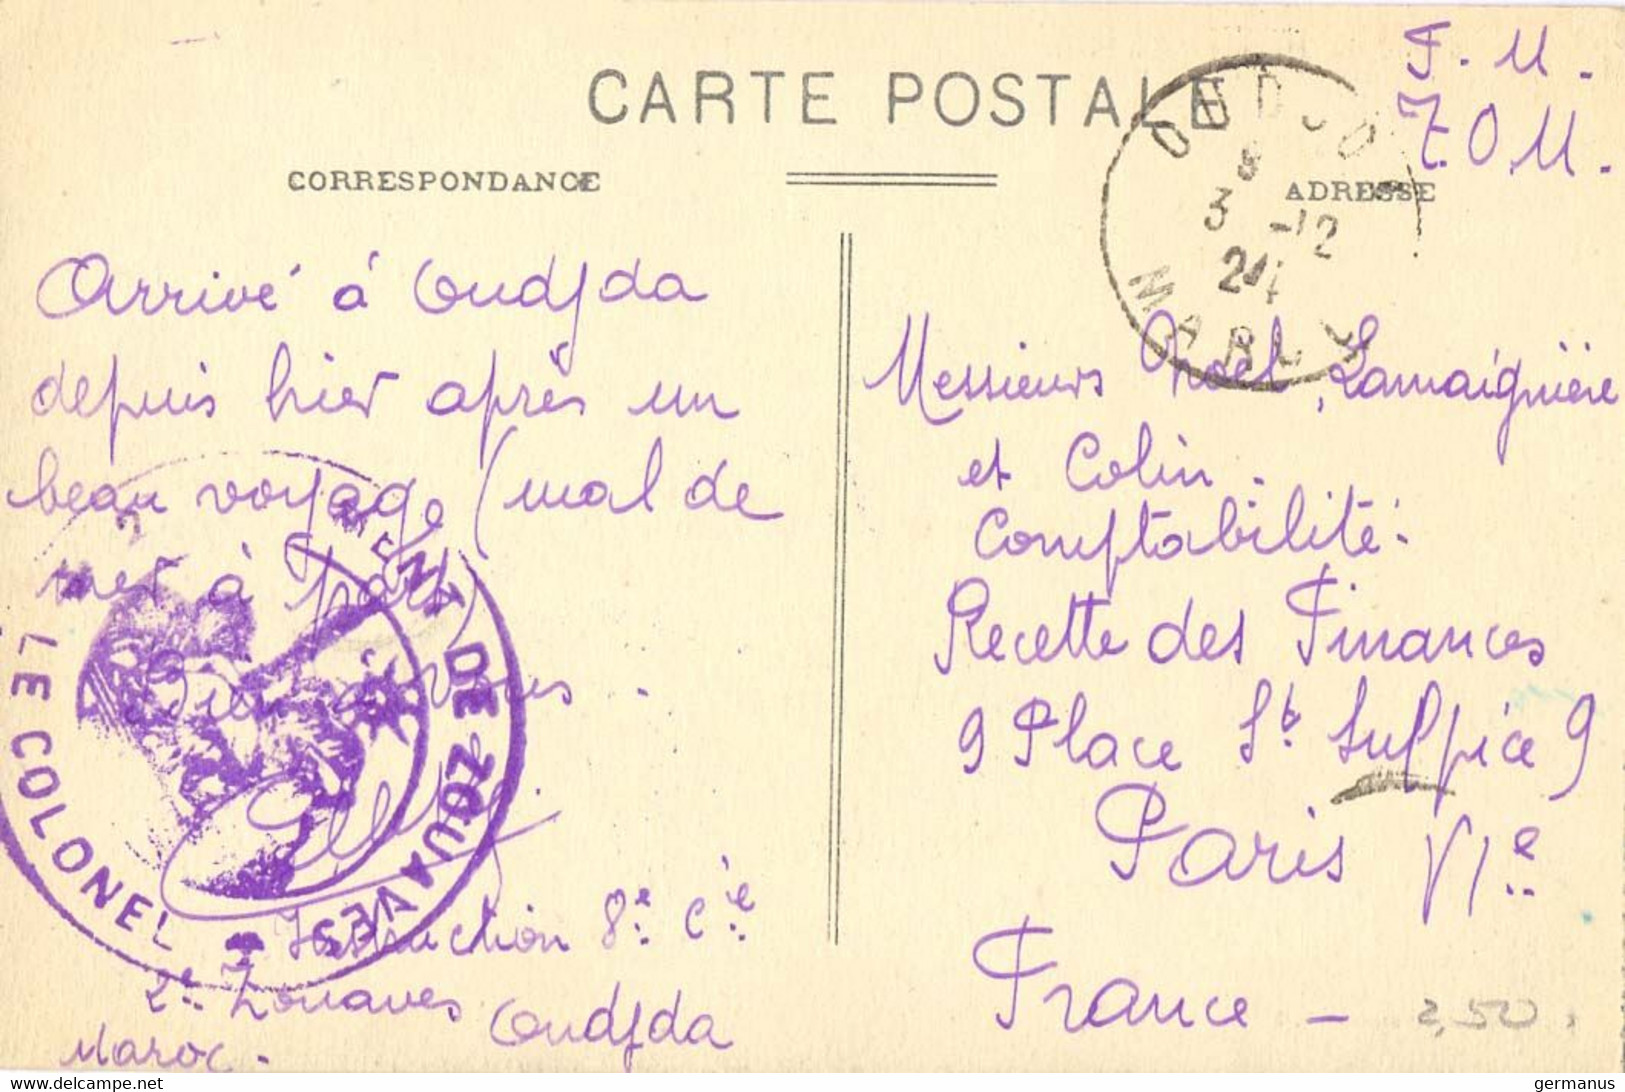 F. M.
T. O M.
CARTE POSTALE
CORRESPONDANCE
ADRESSE
OUDJDA
8
3 -12
24
MAROC
Arrivé à Oudjda
depuis hier après un
beau voyage (mal de
mer à part)
Bien à vous.
Instruction 8e. Cie.
2e. Zouaves Oudjda
Maroc.
LE COLONEL
MENT DE ZOUAVES
Messieurs Noël, Lamaignière
et Colin.
Comptabilité.
Recette des Finances
9 Place St Sulpice 9
Paris VIe.
France -
2,50
delcampe.net
germanus